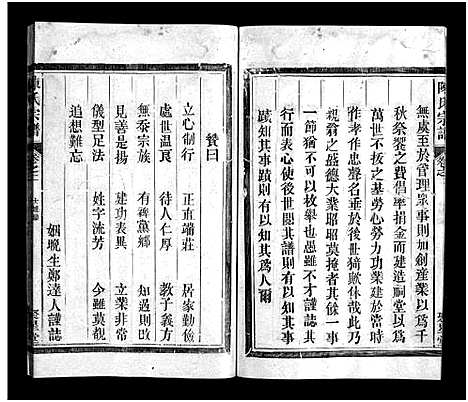 陳氏宗譜
無虞至於管理眾事則加創產業以為千
秋祭冬之費倡率捐金而建造祠堂以為
萬世不拔之基勞心勞力功業建於當時
作孝作忠聲名垂於後世猗歟休哉此乃
親翁之盛德大業昭昭莫掩者其餘一事
一節猶不可以枚舉也愚雖不才謹誌其
行而表心使後世閱其譜則有以知其事
蹟知其事蹟則有以知其為人爾
贊曰
立心制行 正直端莊 居家勤儉
處世溫良 待人仁厚 教子義方
無忝宗族 有裨黨鄉 知過則改
見善是揚 建功表異 立業非常
儀型足法 姓字流芳 今雖莫覩
追想難忘
姻晚生鄭達人謹誌
陳氏宗譜